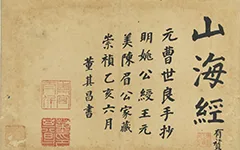 山海經
元曹世良手抄
明姚公綬王元
美陳眉公家藏
崇禎乙亥六月
董其昌書